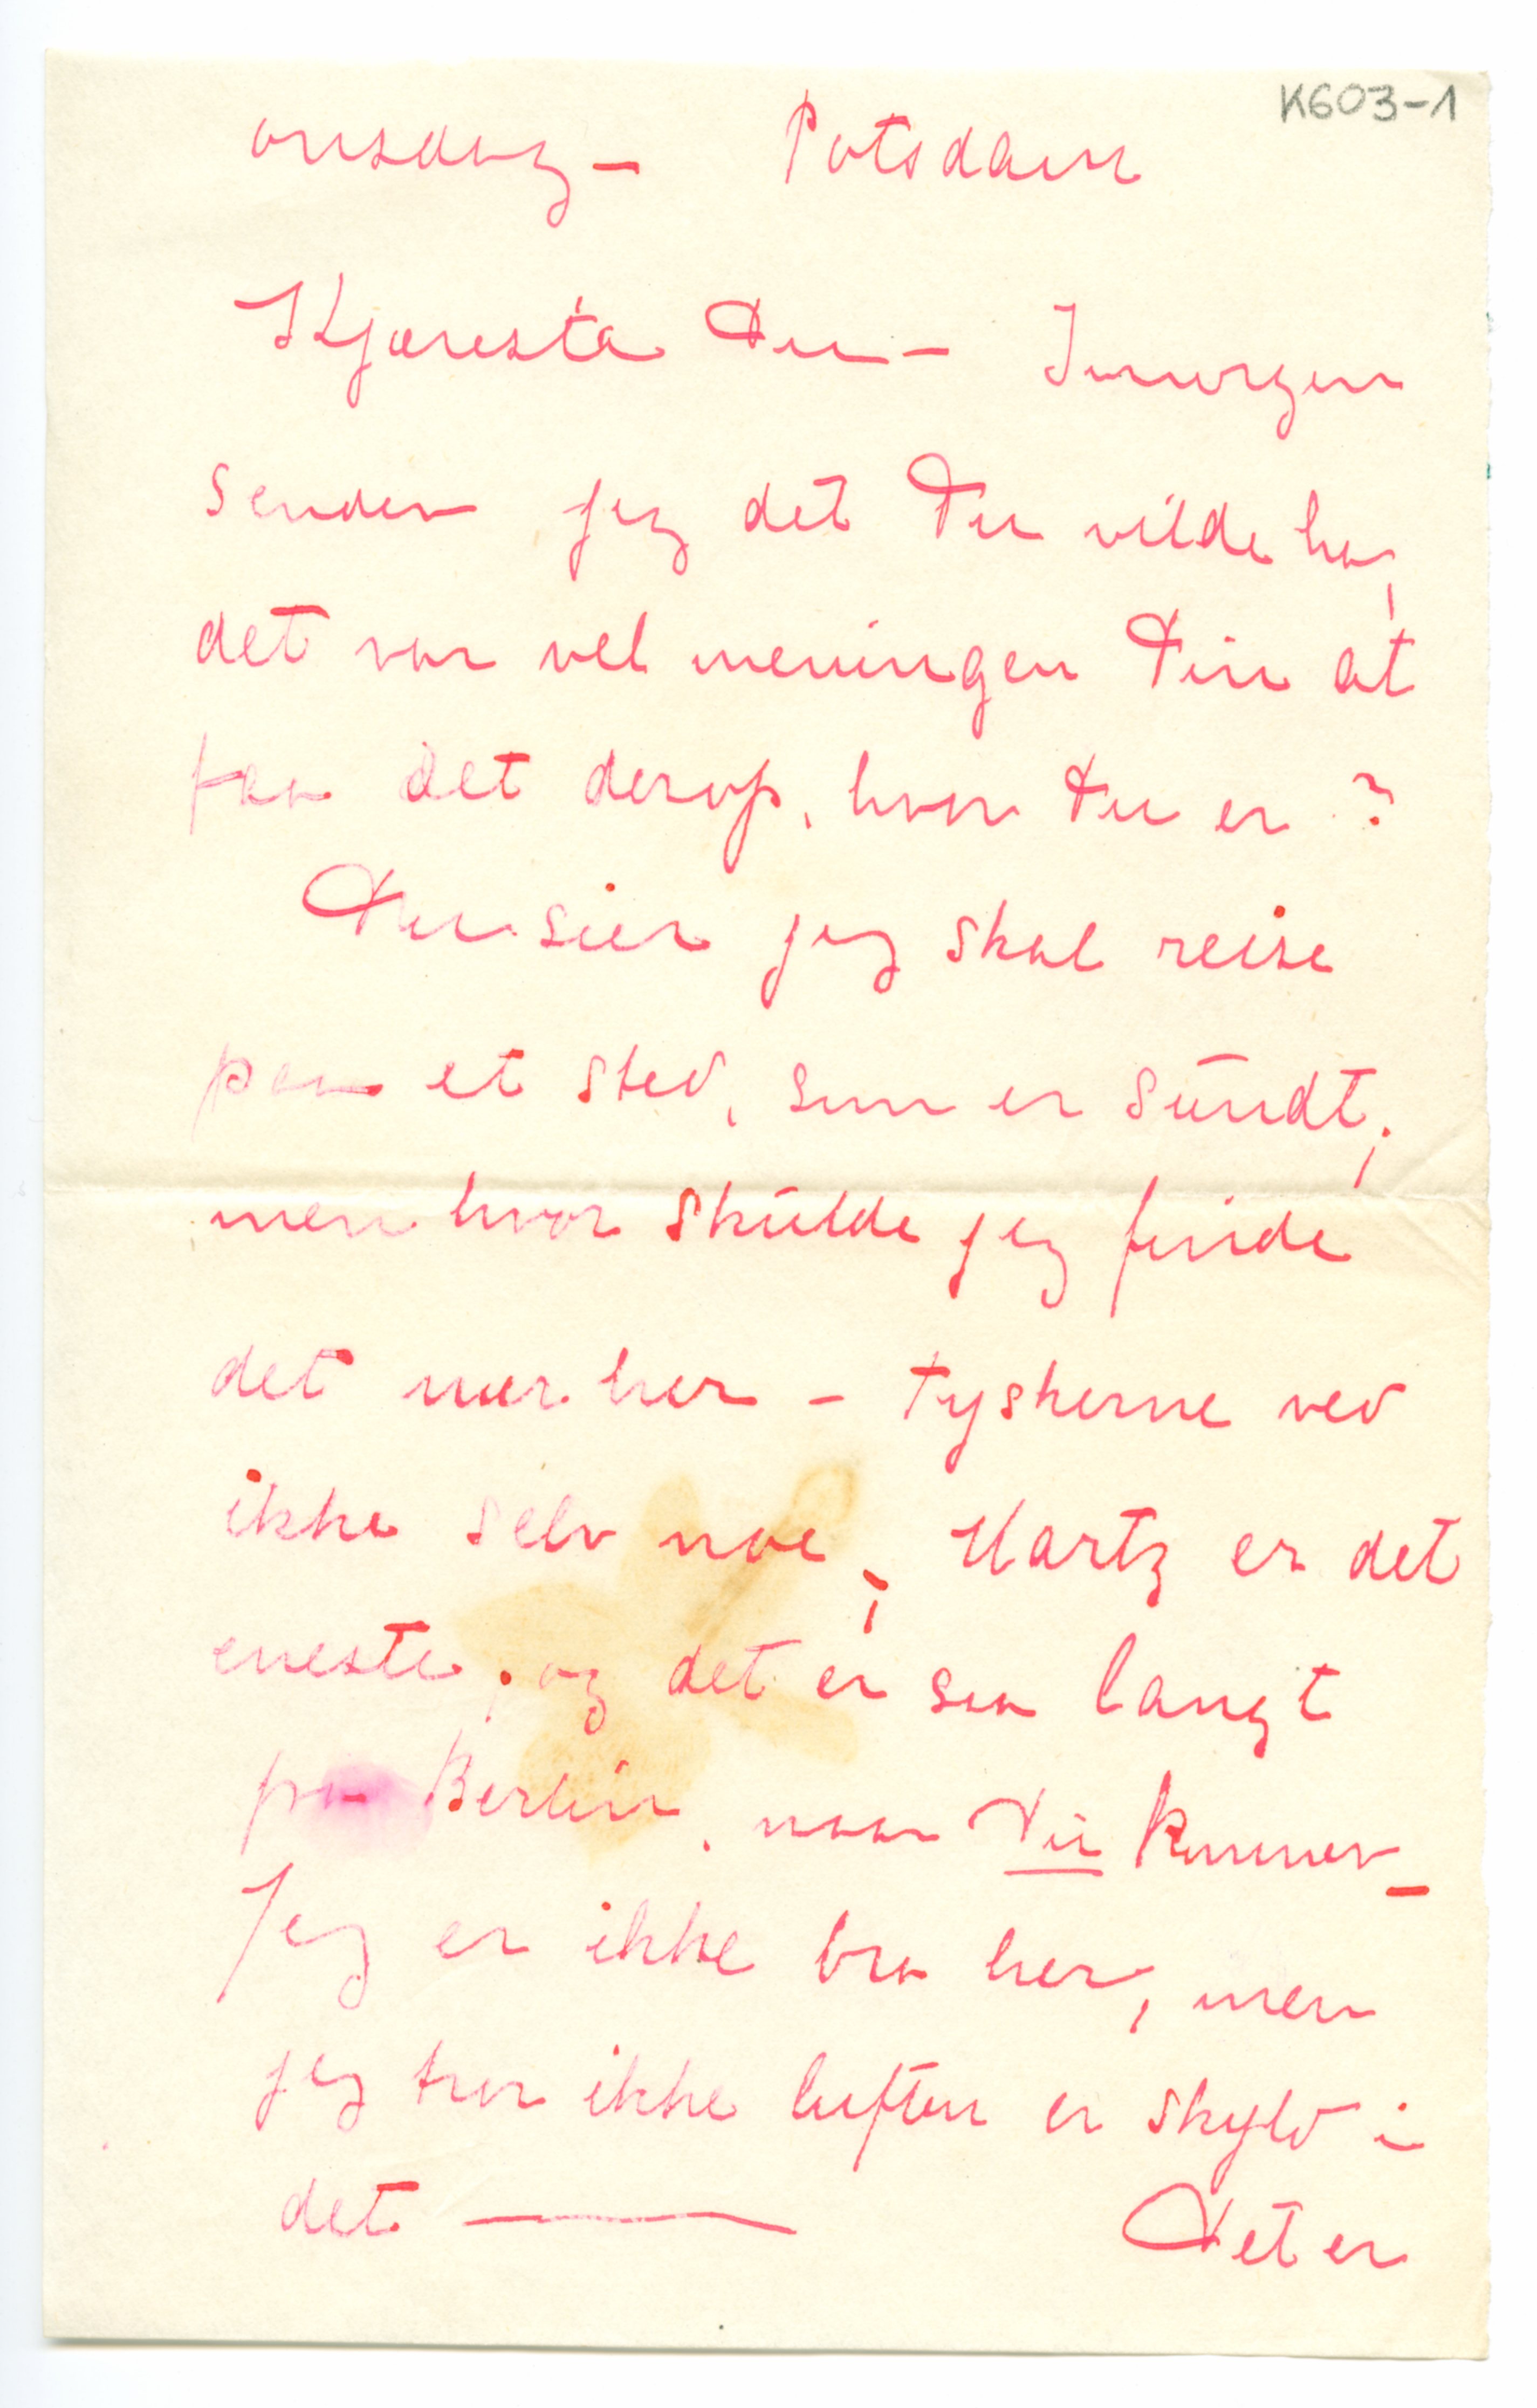 K603-1
onsdag – Potsdam
Kjæresta Du – Imorgen
sender jeg det Du vilde ha,
det var vel meningen Din at
faa det derop, hvor Du er?
Du sier jeg skal reise
paa et sted, som er sundt;
men hvor skulde jeg finde
det nær her – tyskerne ved
ikke selv noe; Hartz er det
eneste, og det er saa langt
fra Berlin, naar Du kommer –
Jeg er ikke bra her, men
jeg tror ikke luften er skyld i
det — Det er